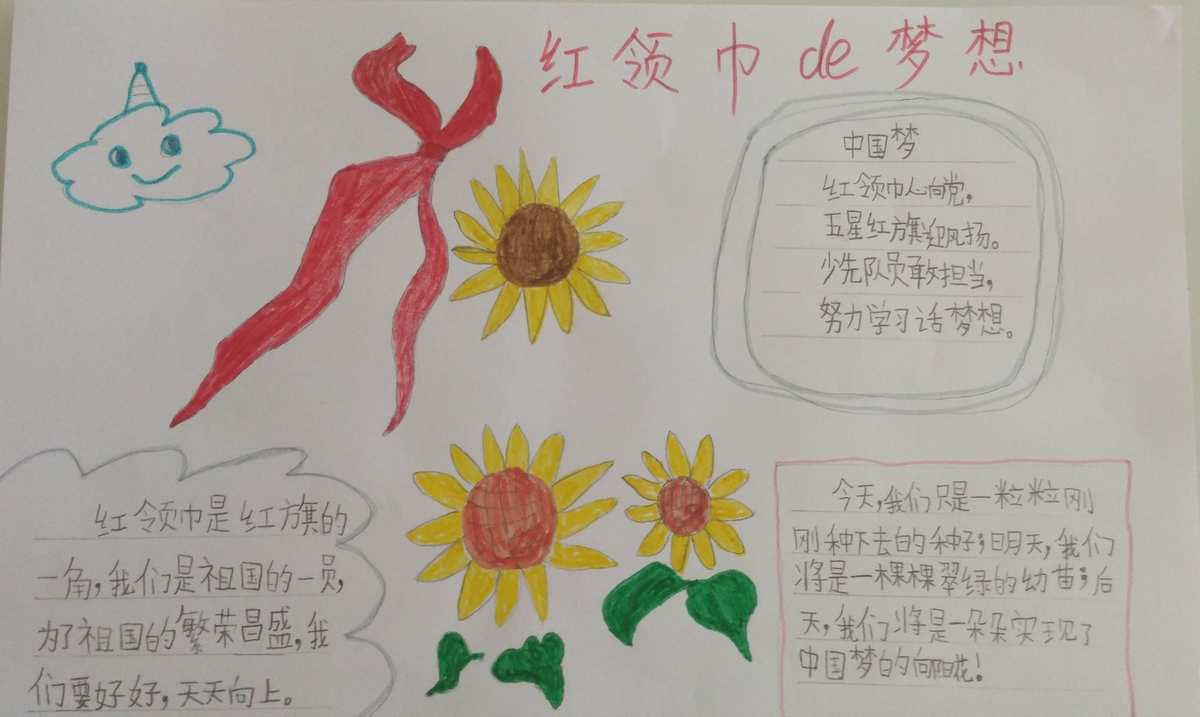 红领巾de梦想
中国梦
红领巾心向党,
五星红旗迎风扬。
少先队员敢担当,
努力学习话梦想。
红领巾是红旗的
一角,我们是祖国的一员,
为了祖国的繁荣昌盛,我
们要好好,天天向上。
今天,我们只是一粒粒刚
刚种下去的种子;明天,我们
将是一棵棵翠绿的幼苗;后
天,我们将是一朵朵实现了
中国梦的向阳花!